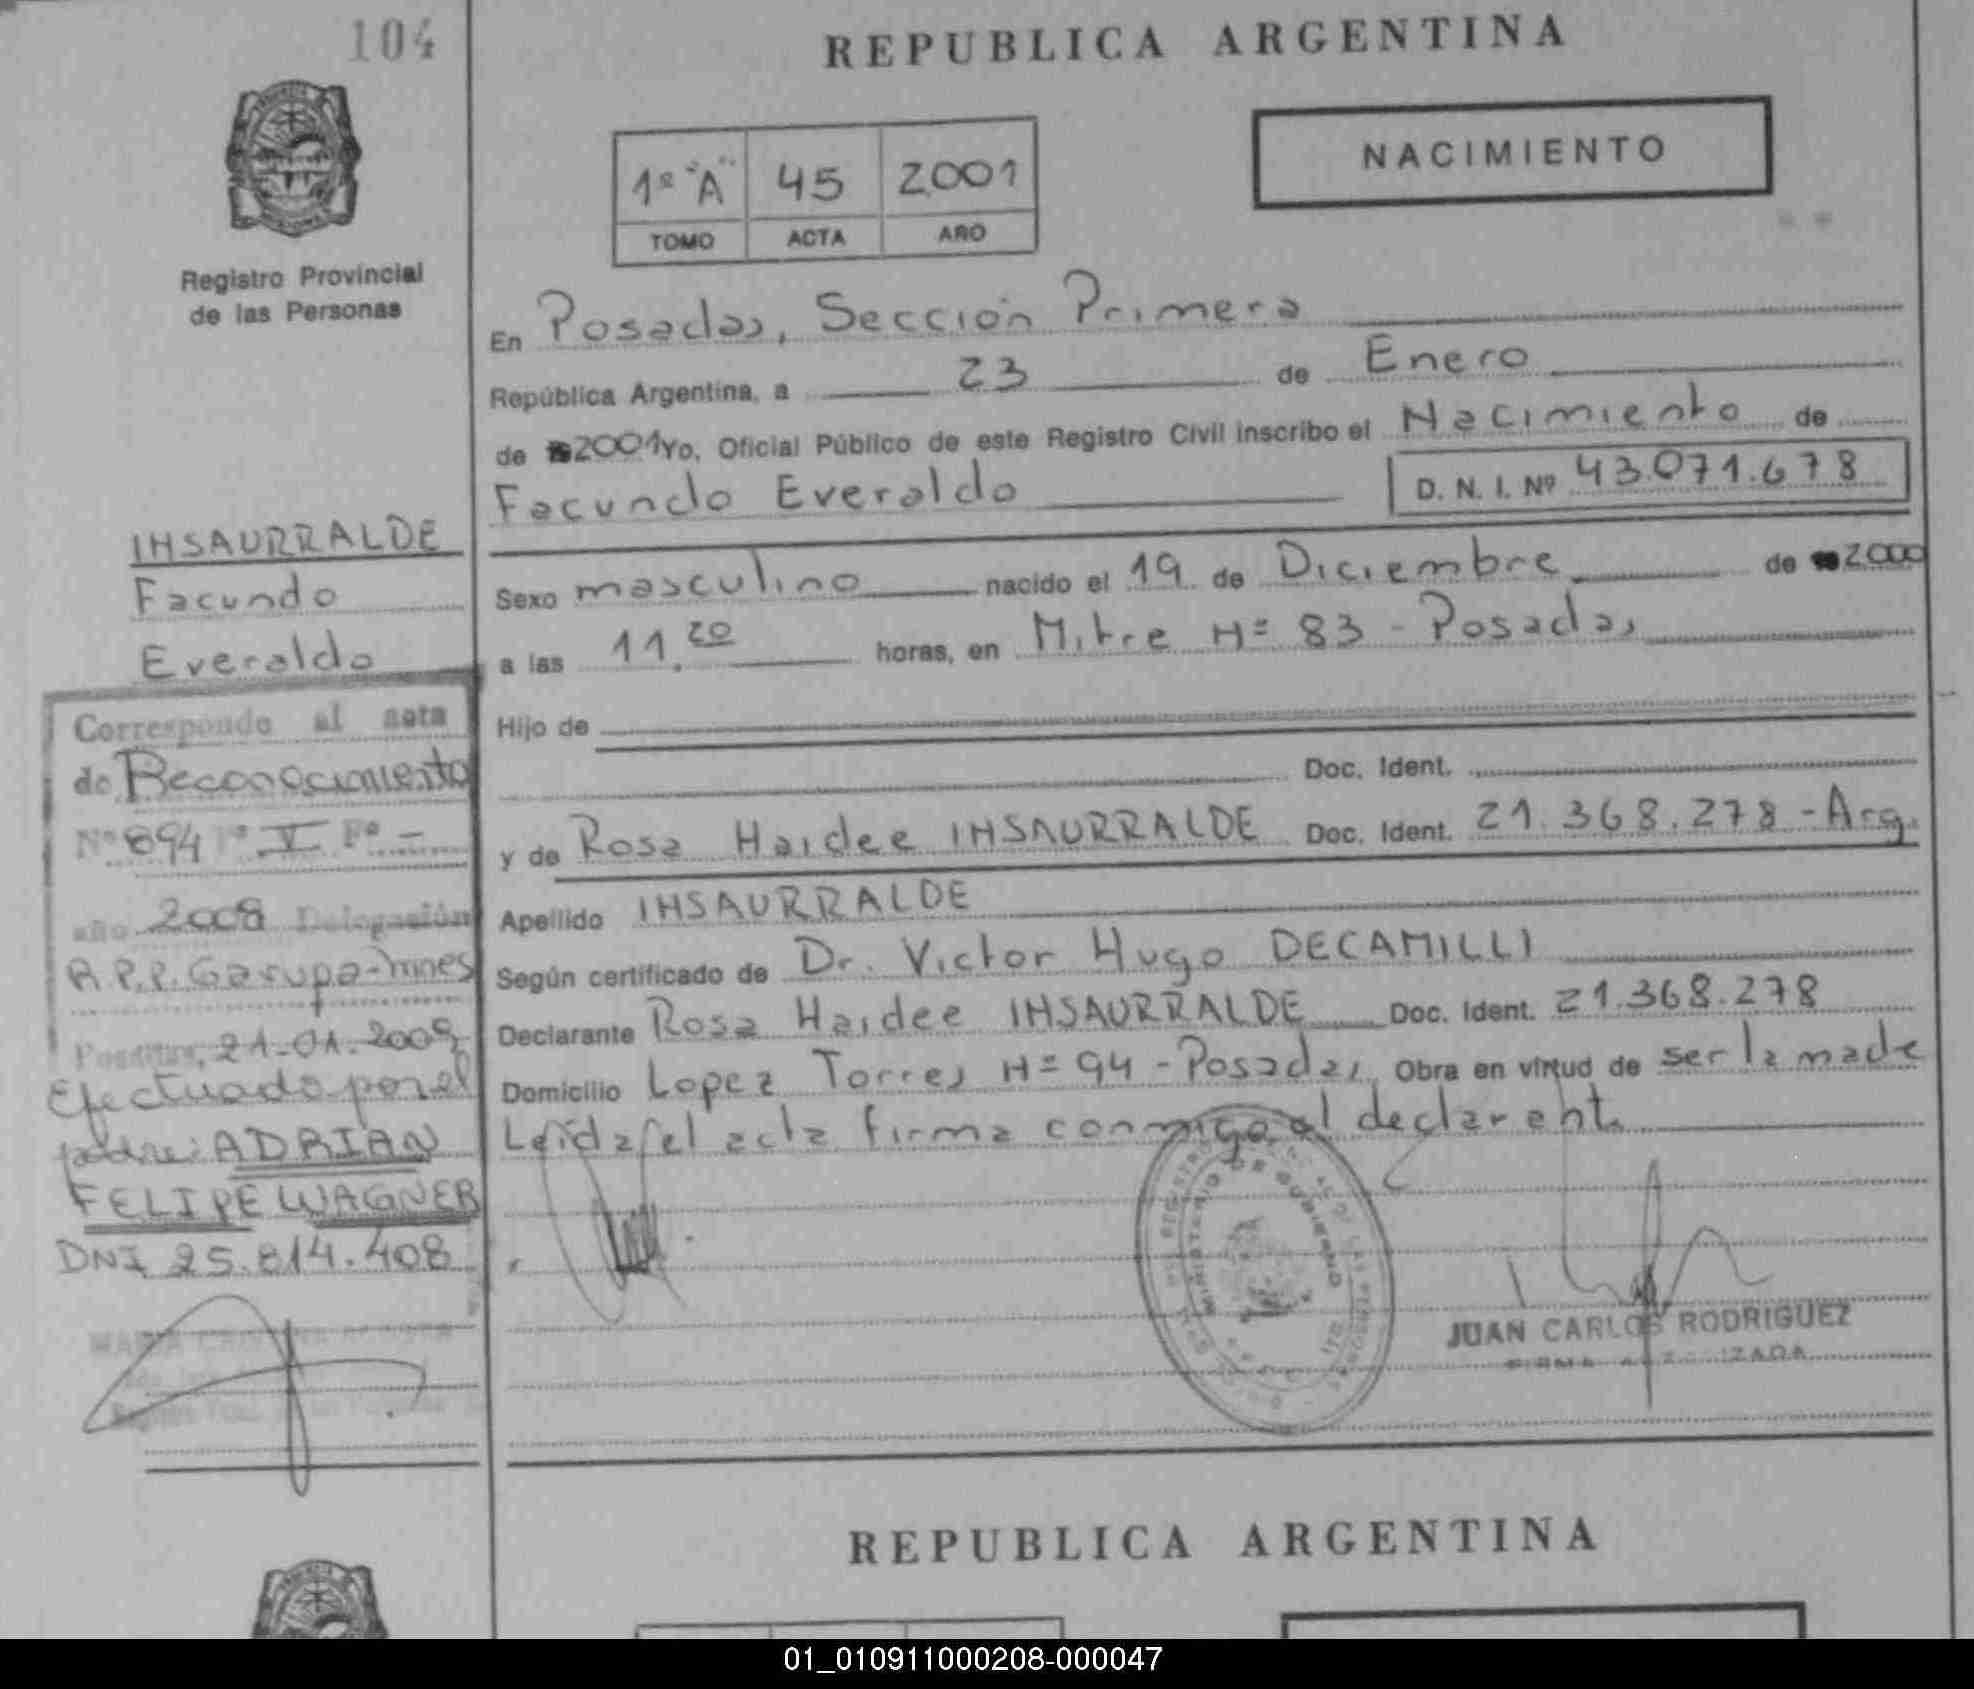 104
REPUBLICA ARGENTINA
NACIMIENTO
1º "A" 45 2001
TOMO ACTA AÑO
Registro Provincial
de las Personas
En Posadas, Sección Primera
República Argentina, a 23 de Enero
de 2001 Yo, Oficial Público de este Registro Civil inscribo el Nacimiento de
Facundo Everaldo D. N. I. Nº 43.071.678
Sexo masculino nacido el 19 de Diciembre de 2000
a las 11.20 horas, en Mitre Nº 83 - Posadas
Hijo de
Doc. Ident.
y de Rosa Haidee INSAURRALDE Doc. Ident. 21.368.278 - Arg.
Apellido INSAURRALDE
Según certificado de Dr. Victor Hugo DECAMILLI
Declarante Rosa Haidee INSAURRALDE Doc. Ident. 21.368.278
Domicilio Lopez Torres Nº 94 - Posadas Obra en virtud de ser la madre
Leída el acta firma conmigo el declarante
JUAN CARLOS RODRIGUEZ
INSAURRALDE
Facundo
Everaldo
Corresponde al acta
de Reconocimiento
Nº 894 Tº V Fº -
año 2008 Delegación
R.P.P. Garupa-Mnes
Posadas, 21-01-2009
Efectuado por el
padre: ADRIAN
FELIPE WAGNER
DNI 25.814.408
REPUBLICA ARGENTINA
01_010911000208-000047